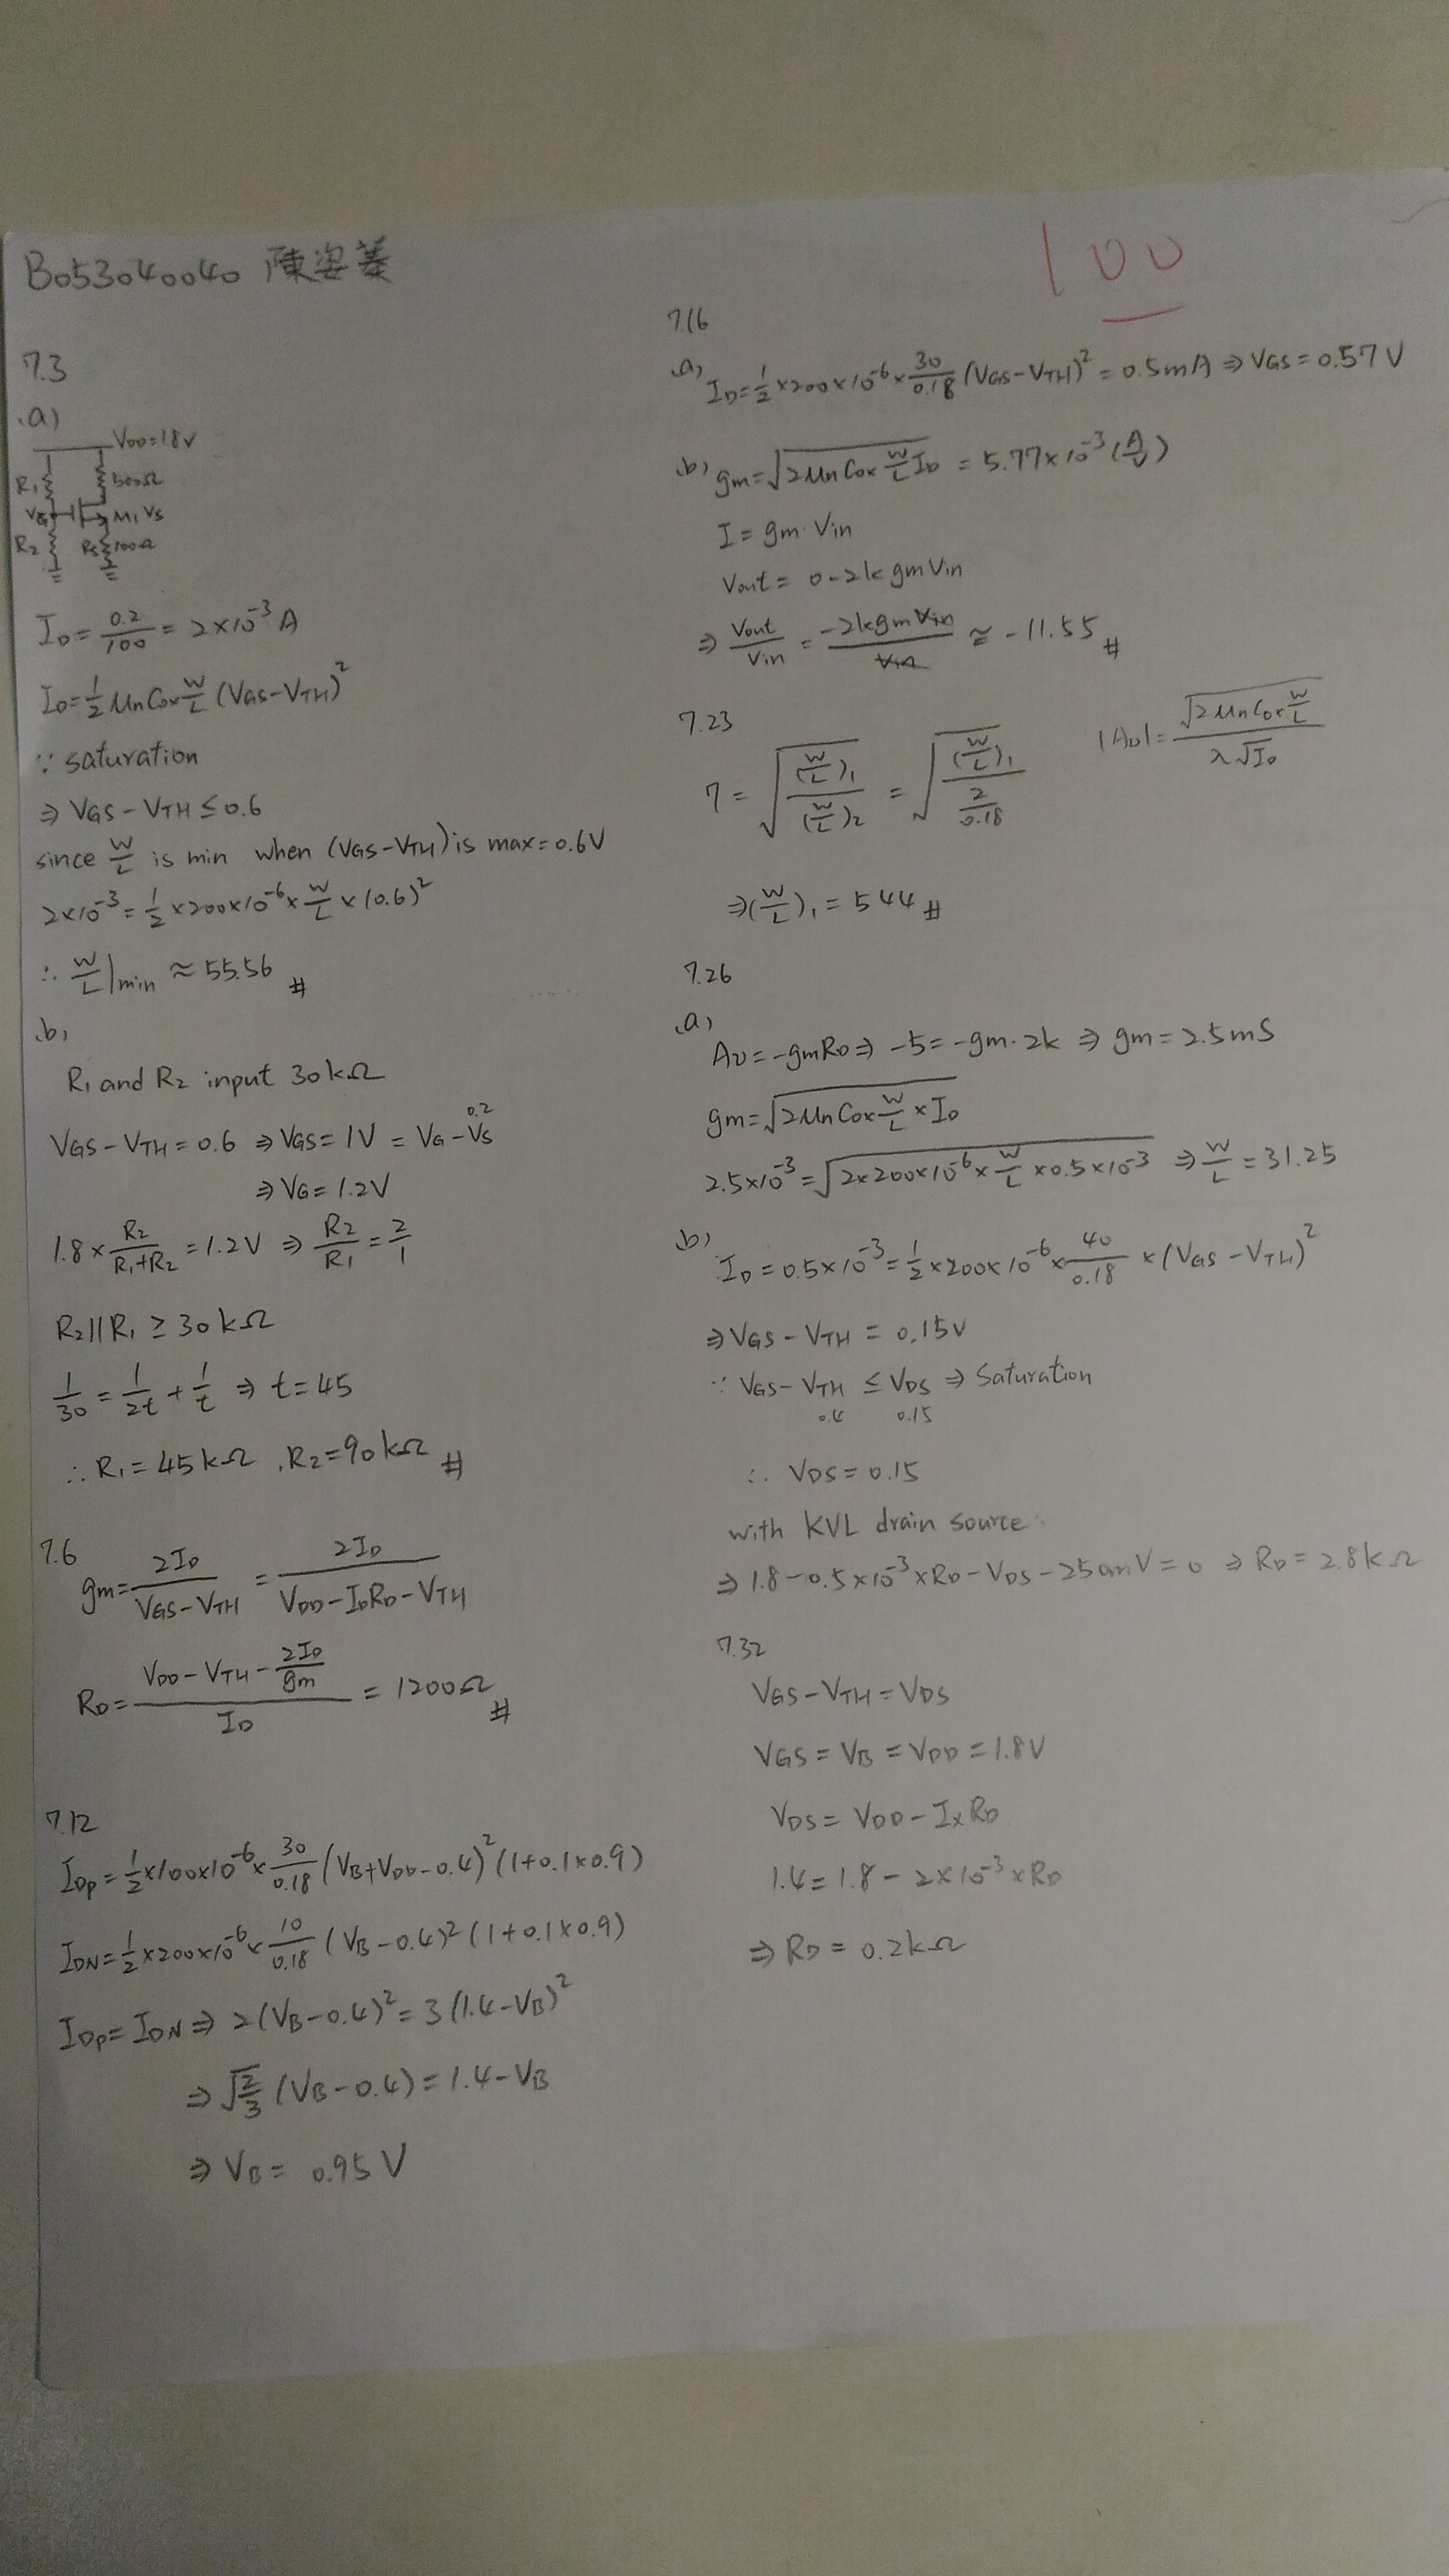 B053040040 陳姿蓁
100
7.3
(a)
VDD=1.8V
R1
500Ω
VG
M1 VS
R2
RS 100Ω
ID = 0.2/100 = 2×10^-3 A
ID = 1/2 μnCox W/L (VGS-VTH)^2
∵ saturation
⇒ VGS - VTH ≤ 0.6
since W/L is min when (VGS-VTH) is max = 0.6V
2×10^-3 = 1/2 × 200×10^-6 × W/L × (0.6)^2
∴ W/L|min ≈ 55.56 #
(b)
R1 and R2 input 30kΩ
0.2
VGS - VTH = 0.6 ⇒ VGS = 1V = VG - VS
⇒ VG = 1.2V
1.8 × R2/(R1+R2) = 1.2V ⇒ R2/R1 = 2/1
R2 || R1 ≥ 30kΩ
1/30 = 1/2t + 1/t ⇒ t = 45
∴ R1 = 45kΩ , R2 = 90kΩ #
7.6
gm = 2ID/(VGS-VTH) = 2ID/(VDD-IDRD-VTH)
RD = (VDD-VTH-2ID/gm)/ID = 1200Ω #
7.12
IDp = 1/2 × 100×10^-6 × 30/0.18 (VB+VDD-0.4)^2 (1+0.1×0.9)
IDN = 1/2 × 200×10^-6 × 10/0.18 (VB-0.4)^2 (1+0.1×0.9)
IDp = IDN ⇒ 2(VB-0.4)^2 = 3(1.4-VB)^2
⇒ √(2/3) (VB-0.4) = 1.4-VB
⇒ VB = 0.95 V
7.16
(a) ID = 1/2 × 200×10^-6 × 30/0.18 (VGS-VTH)^2 = 0.5mA ⇒ VGS = 0.57V
(b) gm = √(2μnCox W/L ID) = 5.77×10^-3 (A/V)
I = gm·Vin
Vout = 0-2k gm Vin
⇒ Vout/Vin = -2kgmVin/Vin ≈ -11.55 #
7.23
7 = √((W/L)1/(W/L)2) = √((W/L)1/(2/0.18))
|Av| = √(2μnCox W/L)/(λ√ID)
⇒ (W/L)1 = 544 #
7.26
(a)
Av = -gmRD ⇒ -5 = -gm·2k ⇒ gm = 2.5mS
gm = √(2μnCox W/L × ID)
2.5×10^-3 = √(2×200×10^-6 × W/L × 0.5×10^-3) ⇒ W/L = 31.25
(b)
ID = 0.5×10^-3 = 1/2 × 200×10^-6 × 40/0.18 × (VGS-VTH)^2
⇒ VGS - VTH = 0.15V
∵ VGS - VTH ≤ VDS ⇒ Saturation
0.4 0.15
∴ VDS = 0.15
with KVL drain source:
⇒ 1.8-0.5×10^-3×RD-VDS-250mV = 0 ⇒ RD = 2.8kΩ
7.32
VGS - VTH = VDS
VGS = VB = VDD = 1.8V
VDS = VDD - IxRD
1.4 = 1.8 - 2×10^-3×RD
⇒ RD = 0.2kΩ